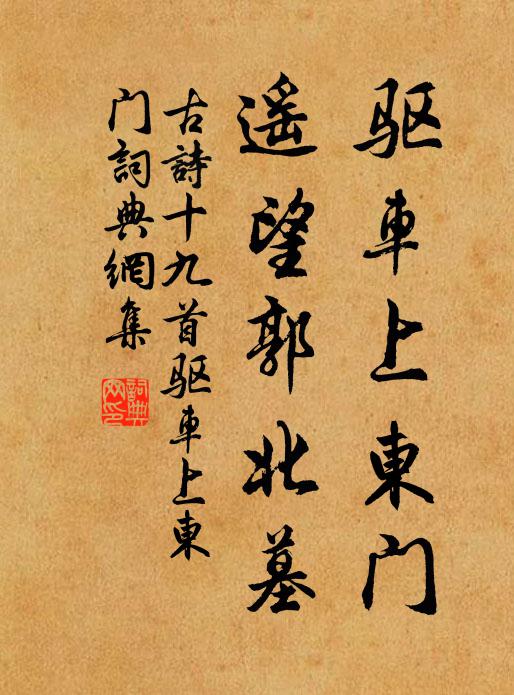 驱車上東门
遥望郭北墓
古詩十九首驱車上東
门詞典網集
詞典
网印